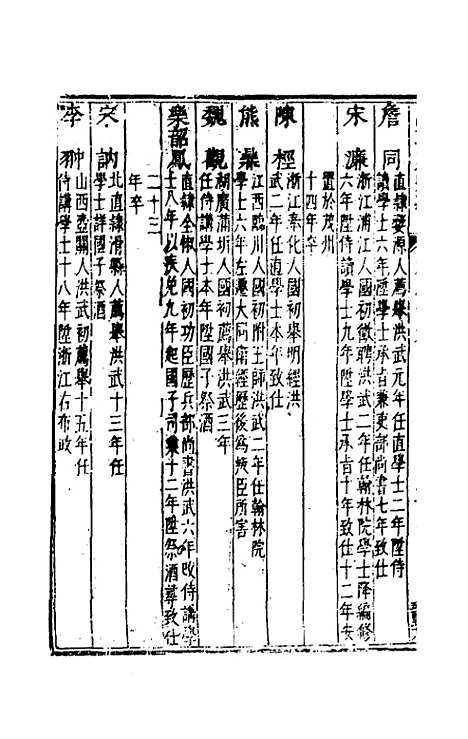 詹同 直隸婺源人薦舉洪武元年任直學士二年陞侍
讀學士六年陞學士承旨兼吏部尚書七年致仕
宋濂 浙江浦江人國初徵聘洪武二年任翰林院學士降編修
六年陞侍讀學士九年陞學士承旨十年致仕十二年安
置於茂州
十四年卒
陳桱 浙江奉化人國初舉明經洪
武二年任直學士本年致仕
熊鼎 江西臨川人國初附王師洪武二年任翰林院
學士六年左遷大同衛經歷後為 臣所害
魏觀 湖廣蒲圻人國初薦舉洪武三年
任侍講學士本年陞國子祭酒
樂韶鳳 直隸全椒人國初功臣歷兵部尚書洪武六年改侍講學
士八年以疾免九年起國子司業十二年陞祭酒尋致仕
二十三
年卒
宋訥 北直隸滑縣人薦舉洪武十三年任
學士詳國子祭酒
李翀 山西壺關人洪武初薦舉十五年任
侍講學士十八年陞浙江右布政